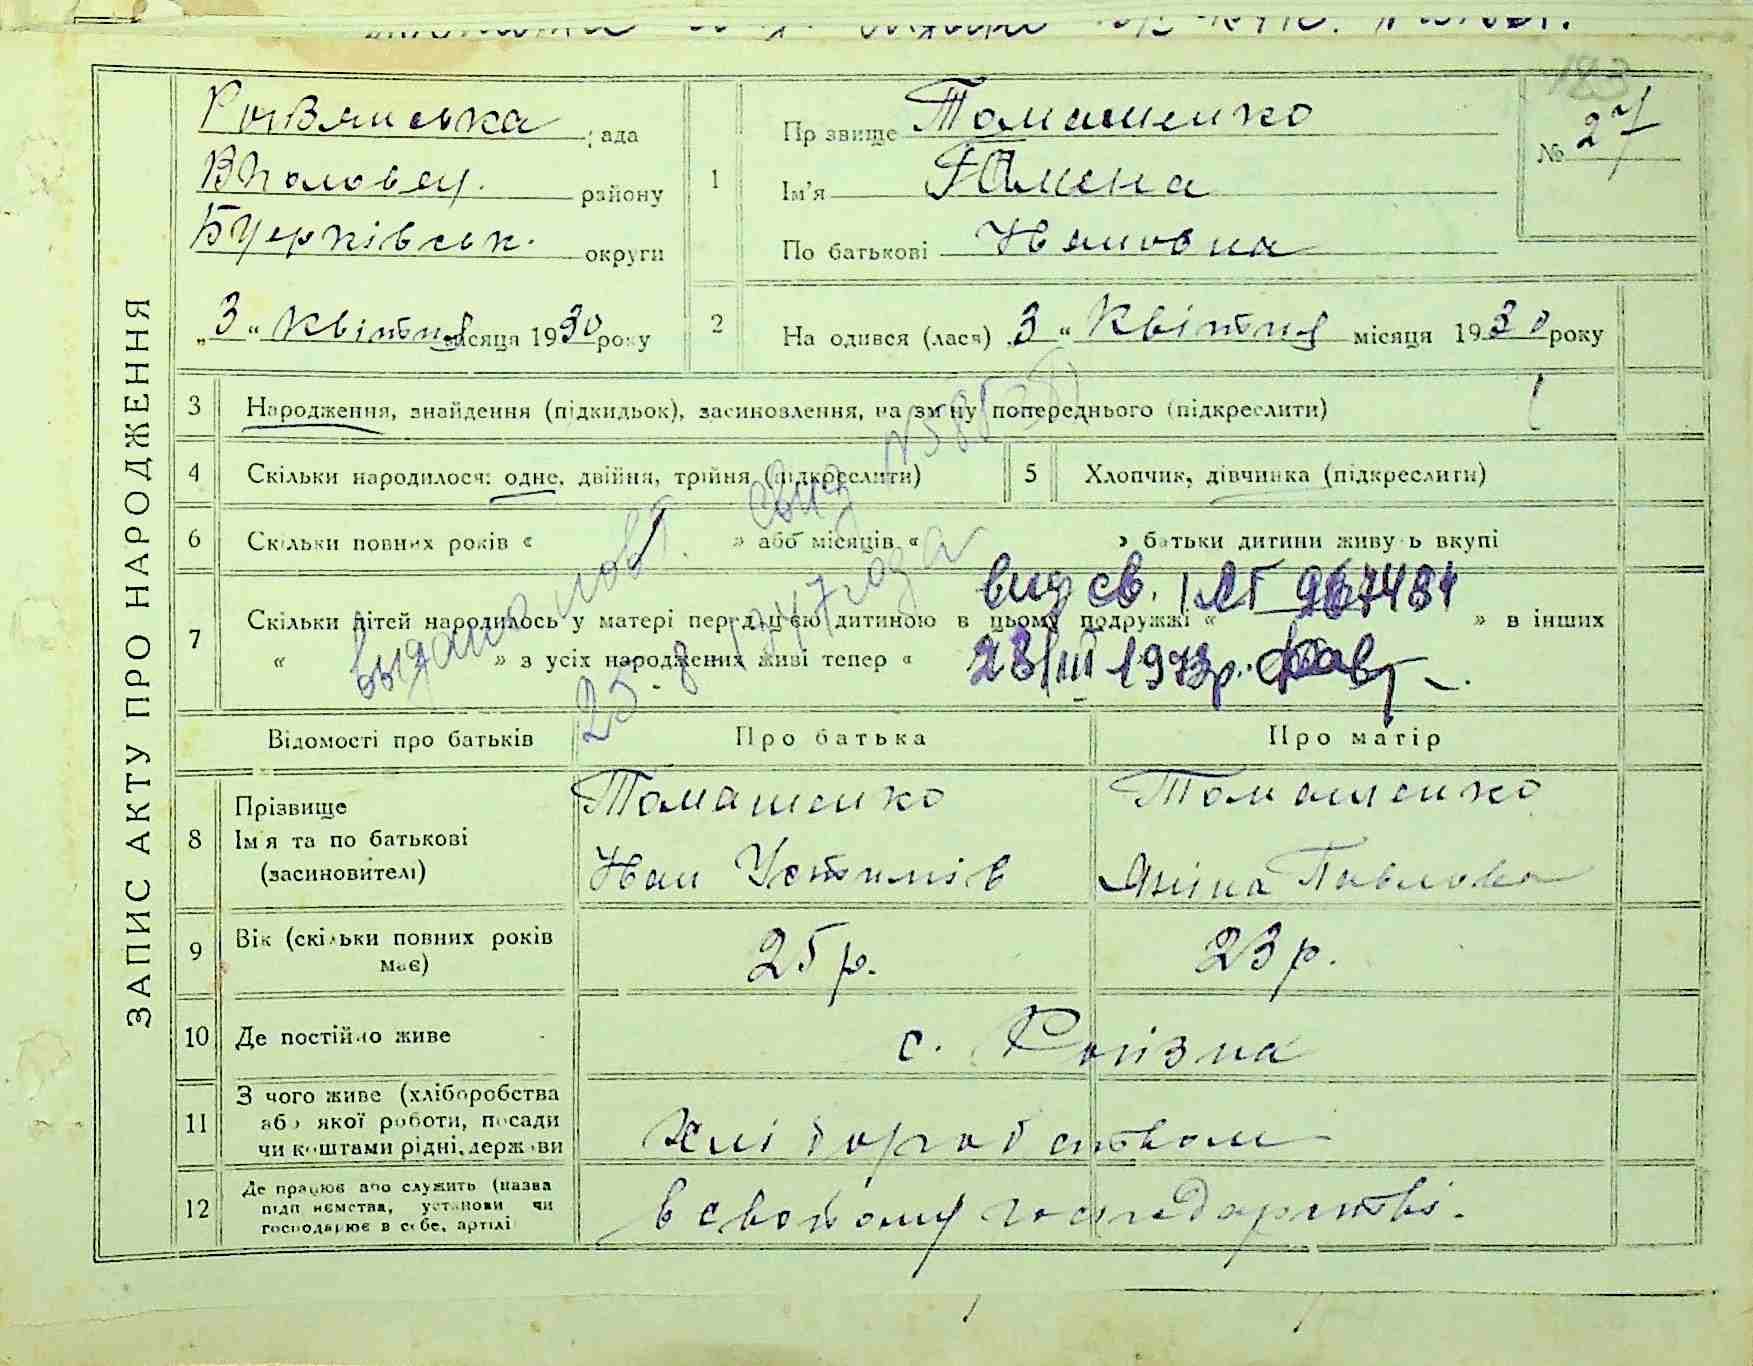 123
ЗАПИС АКТУ ПРО НАРОДЖЕННЯ
рада
Вполовец. району
БЦерківськ. округи
„3“ Квітня місяця 1930 року
1
Прізвище Томашенко
Ім'я
По батькові Ивановна
№ 27
2
На одився (лася) „3“ Квітня місяця 1930 року
3
Народження, знайдення (підкидьок), засиновлення, на зміну попереднього (підкреслити)
4
Скільки народилося: одне, двійня, трійня (підкреслити)
5
Хлопчик, дівчинка (підкреслити)
6
Скільки повних років « » або місяців « » батьки дитини живуть вкупі
7
Скільки дітей народилось у матері перед цією дитиною в цьому подружжі « » в інших
« » з усіх народжених живі тепер «
выдано повт. свид
25. 8. 1947 года
вид св. 967484
28/III 1973р.
Відомості про батьків
Про батька
Про матір
8
Прізвище
Ім'я та по батькові
(засиновителі)
Томашенко
Иван Устимів
Томашенко
Яніна Павлова
9
Вік (скільки повних років
має)
25 р.
23 р.
10
Де постійно живе
с. Рогізна
11
З чого живе (хліборобства
або якої роботи, посади
чи коштами рідні, держави
хліборобством
12
Де працює або служить (назва
підприємства, установи чи
господарює в себе, артілі
в свойому господарстві.